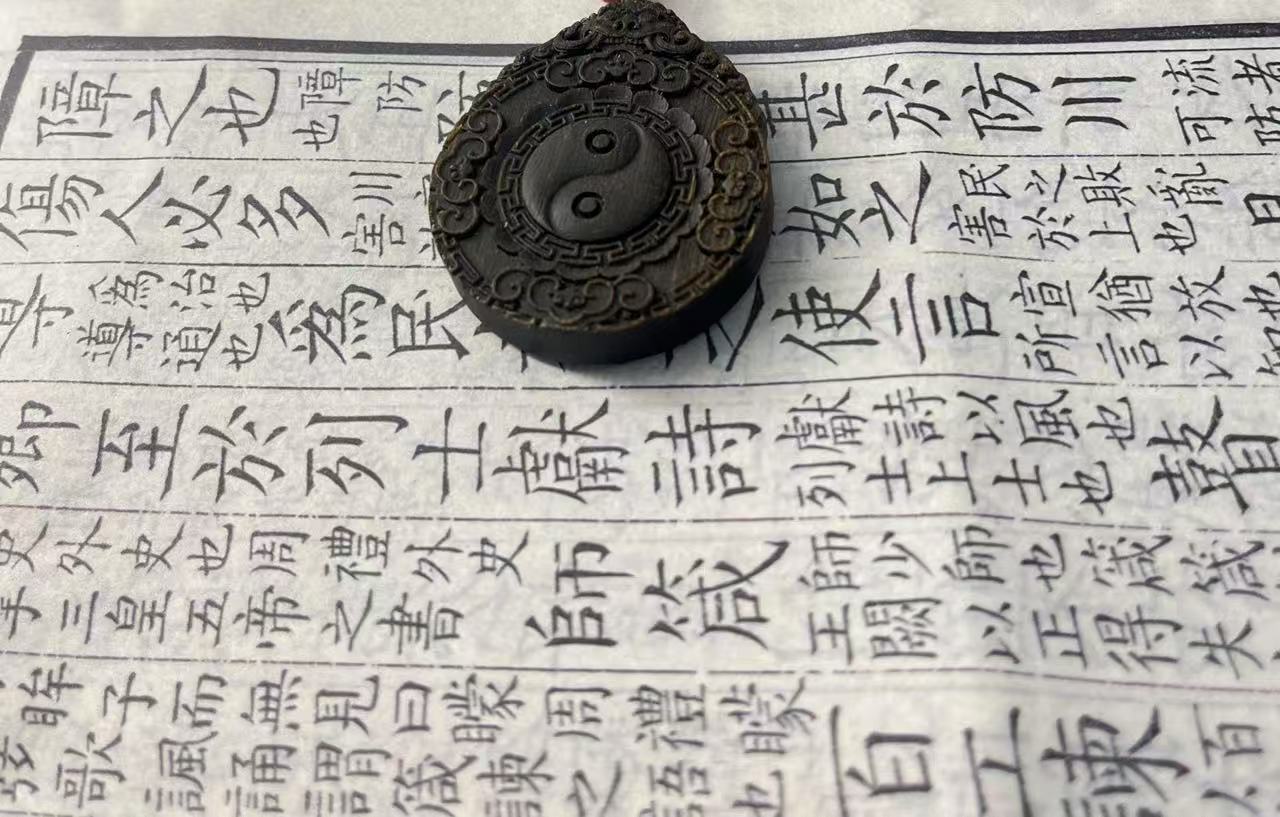 障之也 障防 也 甚於防川 流者 可防
傷人必多 川 害 如之 民之敗亂 害於上也 日
導 爲治也 導通也 爲民 之使言 宣猶放也 所言以知
卿至於列士獻詩 獻詩以風也 列士上士也 瞽
史 外史也周禮外史 掌三皇五帝之書 師箴 師少師也箴箴 王闕以正得失
眸子而無見曰矇周禮矇 弦歌諷誦謂箴諫之語也 百工諫 百 以